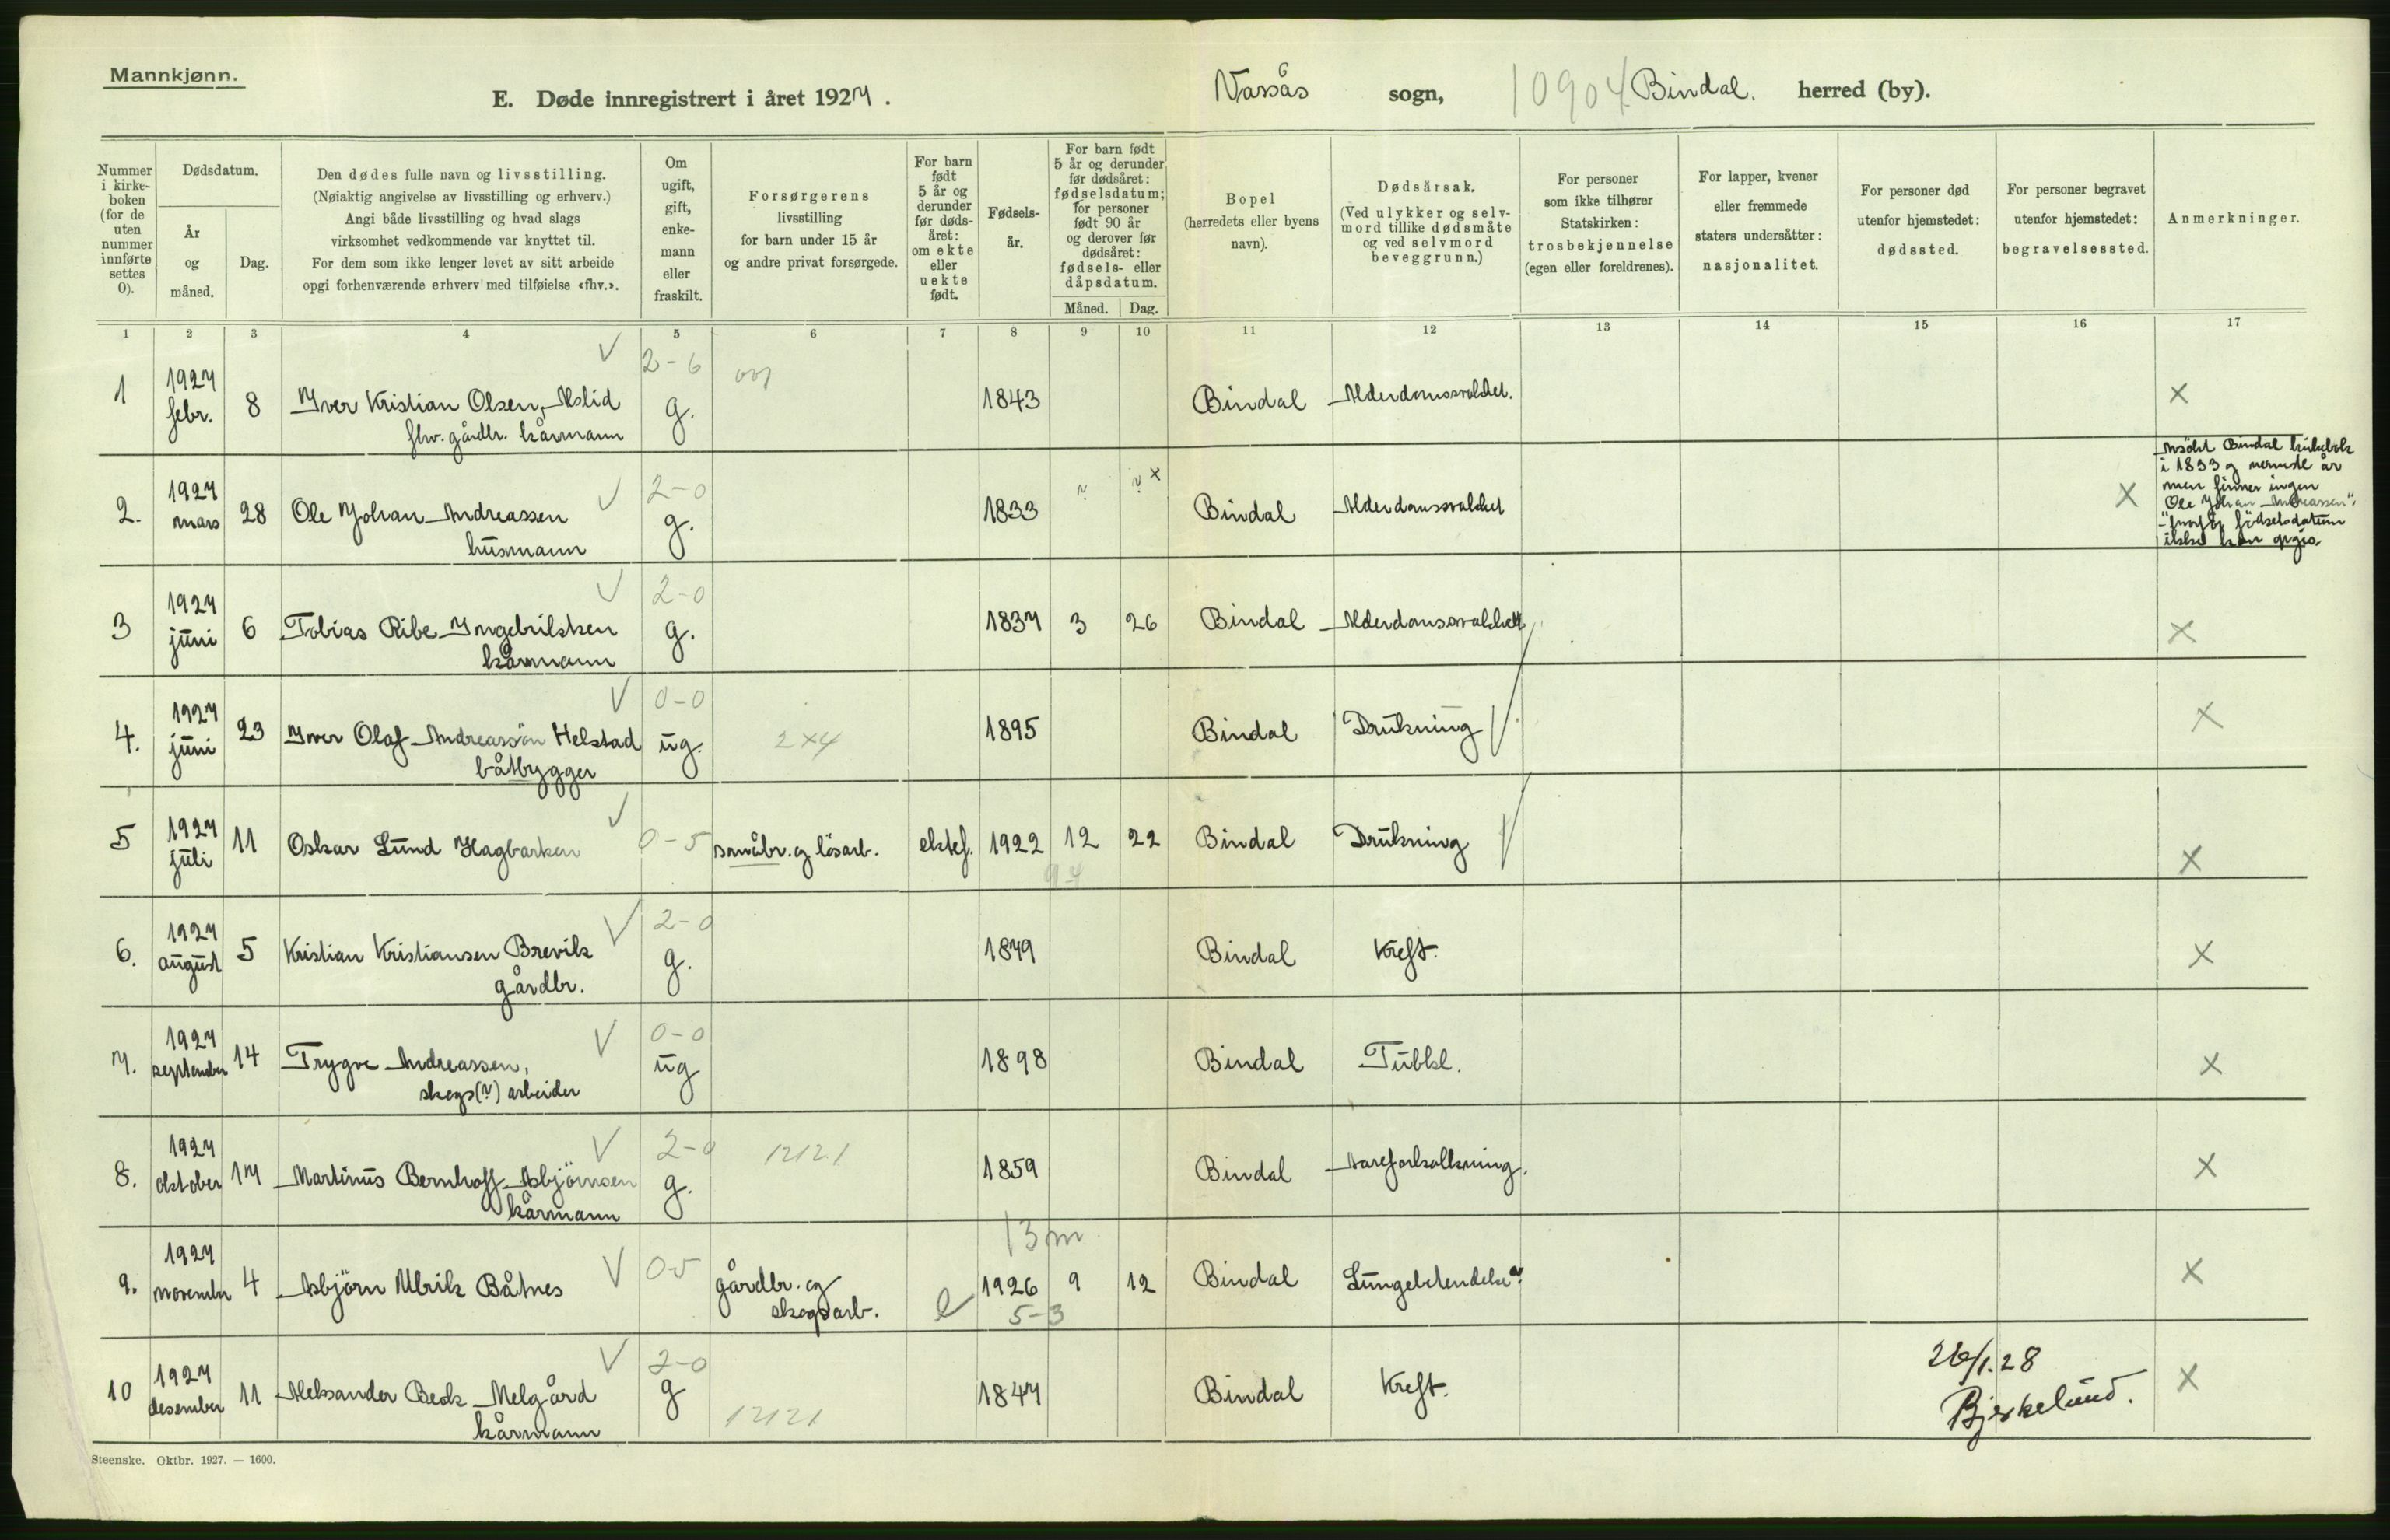 Mannkjønn.
E. Døde innregistrert i året 1927.
Vassås sogn, 10904 Bindal. herred (by).
Nummer
i kirke-
boken
(for de
uten
nummer
innførte
settes
0).
Dødsdatum.
År
og
måned.
Dag.
Den dødes fulle navn og livsstilling.
(Nøiaktig angivelse av livsstilling og erhverv.)
Angi både livsstilling og hvad slags
virksomhet vedkommende var knyttet til.
For dem som ikke lenger levet av sitt arbeide
opgi forhenværende erhverv med tilføielse «fhv.».
Om
ugift,
gift,
enke-
mann
eller
fraskilt.
Forsørgerens
livsstilling
for barn under 15 år
og andre privat forsørgede.
For barn
født
5 år og
derunder
før døds-
året:
om ekte
eller
uekte
født.
Fødsels-
år.
For barn født
5 år og derunder
før dødsåret:
fødselsdatum;
for personer
født 90 år
og derover før
dødsåret:
fødsels- eller
dåpsdatum.
Måned. Dag.
Bopel
(herredets eller byens
navn).
Dødsårsak.
(Ved ulykker og selv-
mord tillike dødsmåte
og ved selvmord
beveggrunn.)
For personer
som ikke tilhører
Statskirken:
trosbekjennelse
(egen eller foreldrenes).
For lapper, kvener
eller fremmede
staters undersåtter:
nasjonalitet.
For personer død
utenfor hjemstedet:
dødssted.
For personer begravet
utenfor hjemstedet:
begravelsessted.
Anmerkninger.
1 2 3 4 5 6 7 8 9 10 11 12 13 14 15 16 17
1 1927 febr. 8 Iver Kristian Olsen Aslid 2-6 g. 1843 Bindal Alderdomssvakhet. X
fhv. gårdbr. kårmann
2. 1927 mars 28 Ole Johan Andreassen 2-0 g. 1833 ? ? x Bindal Alderdomssvakhet X
husmann
Ansökt Bindal kirkebok
i 1833 og nermeste år
men finner ingen
"Ole Johan Andreassen",
fødselsdatum
ikke kan opgis.
3 1927 juni 6 Tobias Ribe Ingebriktsen 2-0 g. 1837 3 26 Bindal Alderdomssvakhet X
kårmann
4. 1927 juni 23 Iver Olaf Andreassön Helstad 0-0 ug. 2x4 1895 Bindal Drukning X
båtbygger
5 1927 juli 11 Oskar Lund Hagbartsen 0-5 småbr. og lösarb. ektef. 1922 12 22 Bindal Drukning X
6. 1927 august 5 Kristian Kristiansen Brevik 2-0 g. 1879 Bindal Kreft. X
gårdbr.
7. 1927 september 14 Trygve Andreassen, 0-0 ug 1898 Bindal Tubkl. X
skogs(?) arbeider
8. 1927 oktober 17 Martinus Bernhoff Asbjörnsen 2-0 g. 12121 1859 Bindal Aareforkalkning. X
kårmann
13 m
9. 1927 november 4 Asbjörn Ulrik Båtnes 0-5 gårdbr. og skogsarb. e 1926 9 12 Bindal Lungebetendelse X
5-3
10 1927 desember 11 Aleksander Beck Melgård 2-0 g 12121 1847 Bindal Kreft. X
kårmann
26/1.28
Bjerkelund.
Steenske. Oktbr. 1927. — 1600.